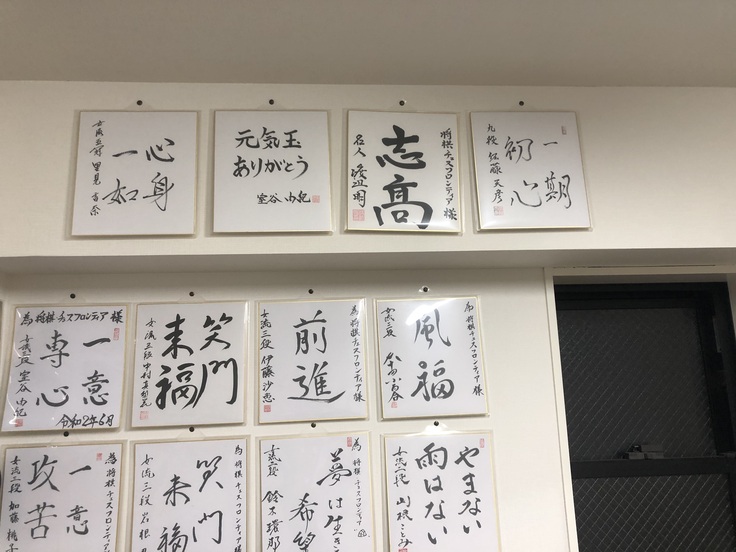 心身
一如
女流五冠 里見 香奈
元気玉
ありがとう
室谷 由紀
将棋チェスフロンティア様
志高
名人 渡辺明
一期
初心
九段 佐藤 天彦
為 将棋チェスフロンティア 様
一意
専心
女流三段 室谷 由紀
令和2年6月
笑門
来福
女流三段 中村真梨花
為 将棋チェスフロンティア様
前進
女流三段 伊藤沙恵
為 将棋チェスフロンティア様
風福
女流二段
為 将棋チェスフロンティア
一意
攻苦
女流三段 加藤 桃
為 将棋チェスフロンティア
笑門
来福
女流三段 岩根
為 将棋チェスフロンティア
夢は生き
希望
鈴木環那
やまない
雨はない
女流二段 山根ことみ